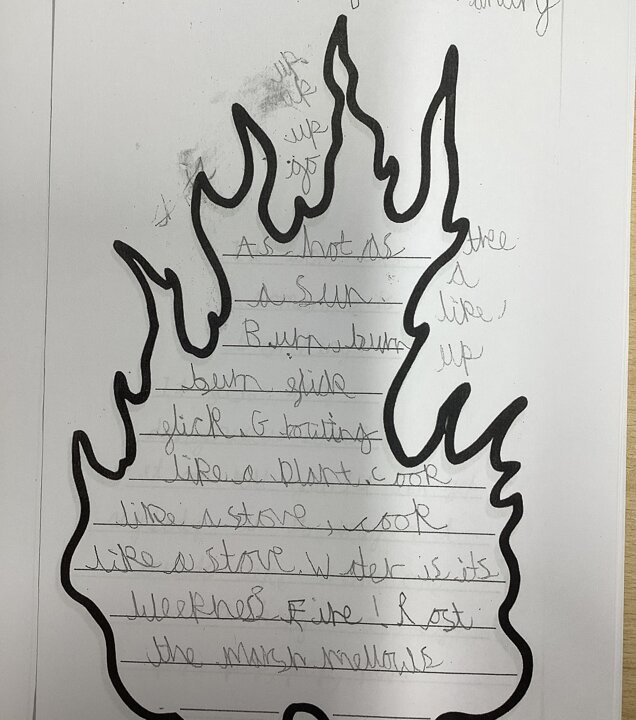 up
up
go
the
a
like,
up
As hot as
a Sun.
Burn, burn
burn glick
glick. Growting
like a plant, cook
like a stove, cook
like a stove. Water is its
Weeknes? Fire! Rost
the marsh mellows